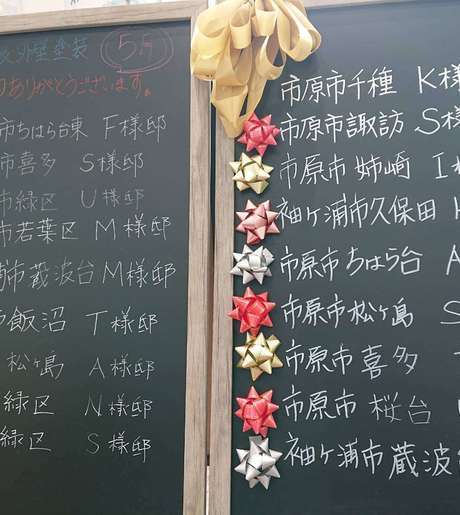 外壁塗装 5月
ありがとうございます。
市ちはら台東 F様邸
市喜多 S様邸
市緑区 U様邸
市若葉区 M様邸
市蔵波台 M様邸
飯沼 T様邸
松ヶ島 A様邸
緑区 N様邸
緑区 S様邸
市原市千種 K様
市原市諏訪 S様
市原市姉崎 I
袖ケ浦市久保田
市原市ちはら台 A
市原市松ヶ島 S
市原市喜多
市原市桜台
袖ケ浦市蔵波